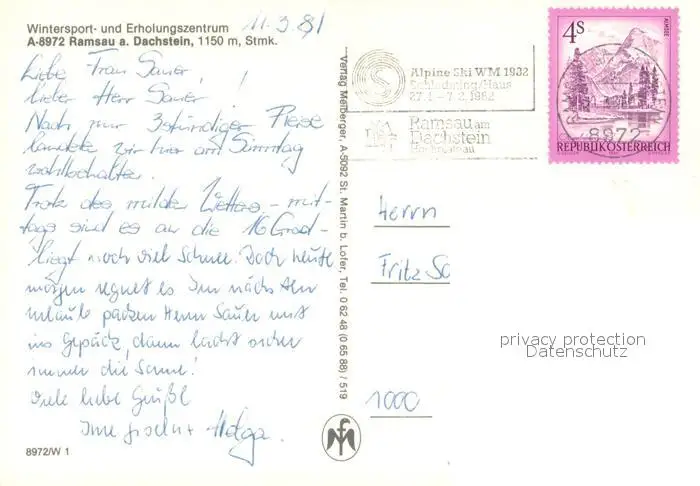 Wintersport- und Erholungszentrum
A-8972 Ramsau a. Dachstein, 1150 m, Stmk.
11.3.81
Liebe Frau Sauer,
lieber Herr Sauer!
Nach nur 3stündiger Reise
landete wir hier am Sonntag
wohlbehalten.
Trotz des milden Wetters - mit-
tags sind es an die 16 Grad -
liegt noch viel Schnee. Doch heute
morgen regnet es. Im nächsten
Urlaub packen Herrn Sauer mit
ins Gepäck, dann lacht sicher
immer die Sonne!
Viele liebe Grüße
Ihre Giesela + Helga.
8972/W 1
Verlag Melberger, A-5092 St. Martin b. Lofer, Tel. 0 62 48 (0 65 88) / 519
Alpine Ski WM 1982
Schladming/Haus
27.1 - 7.2.1982
Ramsau am
Dachstein
4S
ALMSEE
8972
REPUBLIK ÖSTERREICH
Herrn
Fritz Sa
1000
privacy protection
Datenschutz